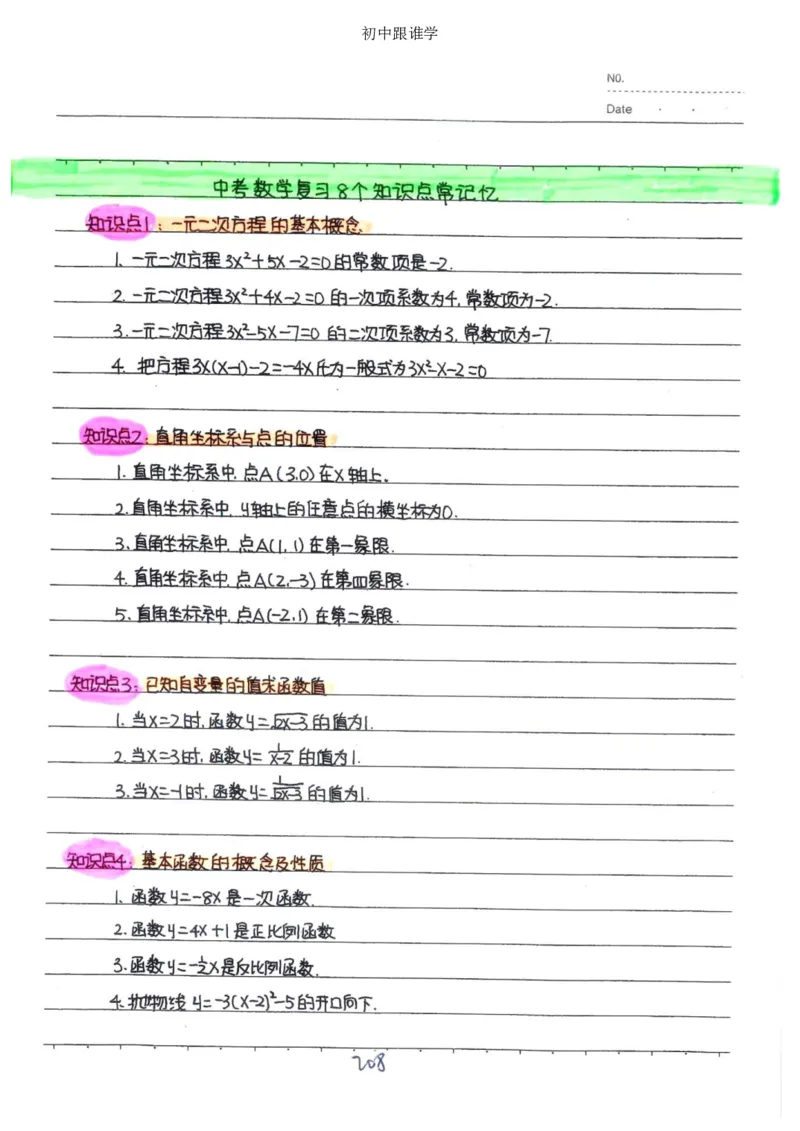 初中跟谁学
N0.
Date
中考数学复习8个知识点常记忆
知识点1：一元二次方程的基本概念
1、一元二次方程3x²+5x-2=0的常数项是-2.
2.一元二次方程3x²+4x-2=0的一次项系数为4,常数项为-2.
3.一元二次方程3x²-5x-7=0的二次项系数为3,常数项为-7.
4. 把方程3x(x-1)-2=-4x化为一般式为3x²-x-2=0
知识点2：直角坐标系与点的位置
1.直角坐标系中,点A(3.0)在x轴上.
2.直角坐标系中,y轴上的任意点的横坐标为0.
3、直角坐标系中,点A(1,1)在第一象限.
4.直角坐标系中,点A(2,-3)在第四象限.
5、直角坐标系中,点A(-2,1)在第二象限.
知识点3：已知自变量的值求函数值
1.当x=2时,函数y=√(2x-3)的值为1.
2.当x=3时,函数y=1/(x-2)的值为1.
3.当x=-1时,函数y=1/√(2x-3)的值为1.
知识点4：基本函数的概念及性质
1、函数y=-8x是一次函数.
2.函数y=4x+1是正比例函数
3.函数y=-½x是反比例函数.
4.抛物线y=-3(x-2)²-5的开口向下.
208